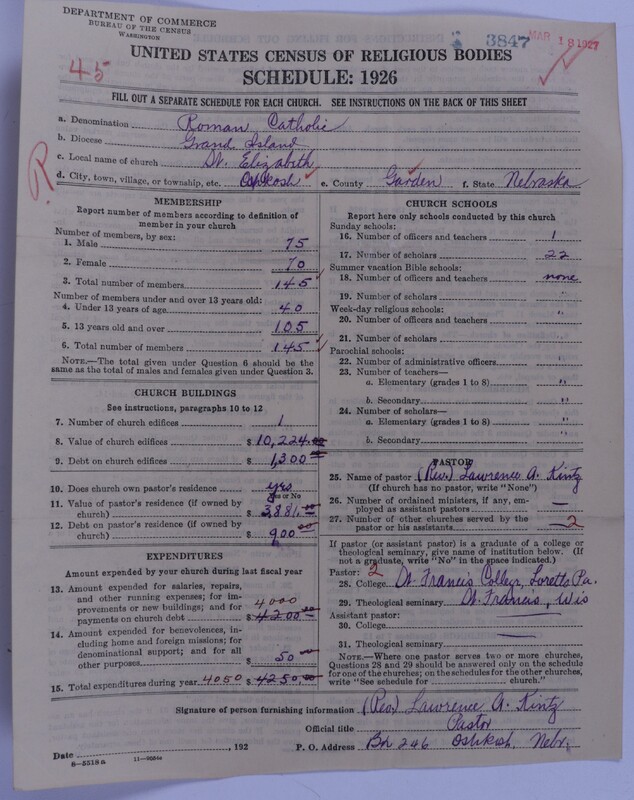 DEPARTMENT OF COMMERCE
BUREAU OF THE CENSUS
WASHINGTON
3847 MAR 18 1927
45
UNITED STATES CENSUS OF RELIGIOUS BODIES
SCHEDULE: 1926
FILL OUT A SEPARATE SCHEDULE FOR EACH CHURCH. SEE INSTRUCTIONS ON THE BACK OF THIS SHEET
a. Denomination Roman Catholic
b. Diocese Grand Island
c. Local name of church St. Elizabeth
R
d. City, town, village, or township, etc. Oshkosh e. County Garden f. State Nebraska
MEMBERSHIP
Report number of members according to definition of member in your church
Number of members, by sex:
1. Male 75
2. Female 70
3. Total number of members 145
Number of members under and over 13 years old:
4. Under 13 years of age 40
5. 13 years old and over 105
6. Total number of members 145
NOTE.—The total given under Question 6 should be
same as the total of males and females given under Question 3.
CHURCH BUILDINGS
See instructions, paragraphs 10 to 12
7. Number of church edifices 1
8. Value of church edifices $ 10,224.00
9. Debt on church edifices $ 1,300.00
10. Does church own pastor's residence yes
Yes or No
11. Value of pastor's residence (if owned by
church) $ 3,881.00
12. Debt on pastor's residence (if owned by
church) $ 900.00
EXPENDITURES
Amount expended by your church during last fiscal year
13. Amount expended for salaries, repairs,
and other running expenses; for im-
provements or new buildings; and for 4000
payments on church debt $ 4200.00
14. Amount expended for benevolences,
including home and foreign missions; for
denominational support; and for all
other purposes $ 50.00
15. Total expenditures during year 4050 $ 4250.00
CHURCH SCHOOLS
Report here only schools conducted by this church
Sunday schools:
16. Number of officers and teachers 1
17. Number of scholars 22
Summer vacation Bible schools:
18. Number of officers and teachers none
19. Number of scholars "
Week-day religious schools:
20. Number of officers and teachers "
21. Number of scholars "
Parochial schools:
22. Number of administrative officers "
23. Number of teachers—
a. Elementary (grades 1 to 8) "
b. Secondary "
24. Number of scholars—
a. Elementary (grades 1 to 8) "
b. Secondary "
PASTOR
25. Name of pastor (Rev.) Lawrence A. Kintz
(If church has no pastor, write "None")
26. Number of ordained ministers, if any, em-
ployed as assistant pastors —
27. Number of other churches served by the
pastor or his assistants 2
If pastor (or assistant pastor) is a graduate of a college or
theological seminary, give name of institution below. (If
not a graduate, write "No" in the space indicated.)
Pastor: 2
28. College St. Francis College, Loretto Pa.
29. Theological seminary St. Francis, Wis
Assistant pastor:
30. College
31. Theological seminary
NOTE.—Where one pastor serves two or more churches,
Questions 28 and 29 should be answered only on the schedule
for one of the churches; on the schedules for the other churches,
write "See schedule for church."
Signature of person furnishing information (Rev) Lawrence A. Kintz
Official title Pastor
Date , 192 P. O. Address Box 246 Oshkosh, Nebr.
8—5518a